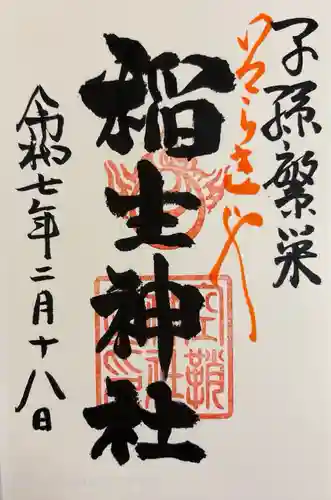 子孫繁栄
いなりきつね
稲生神社
令和七年二月十八日